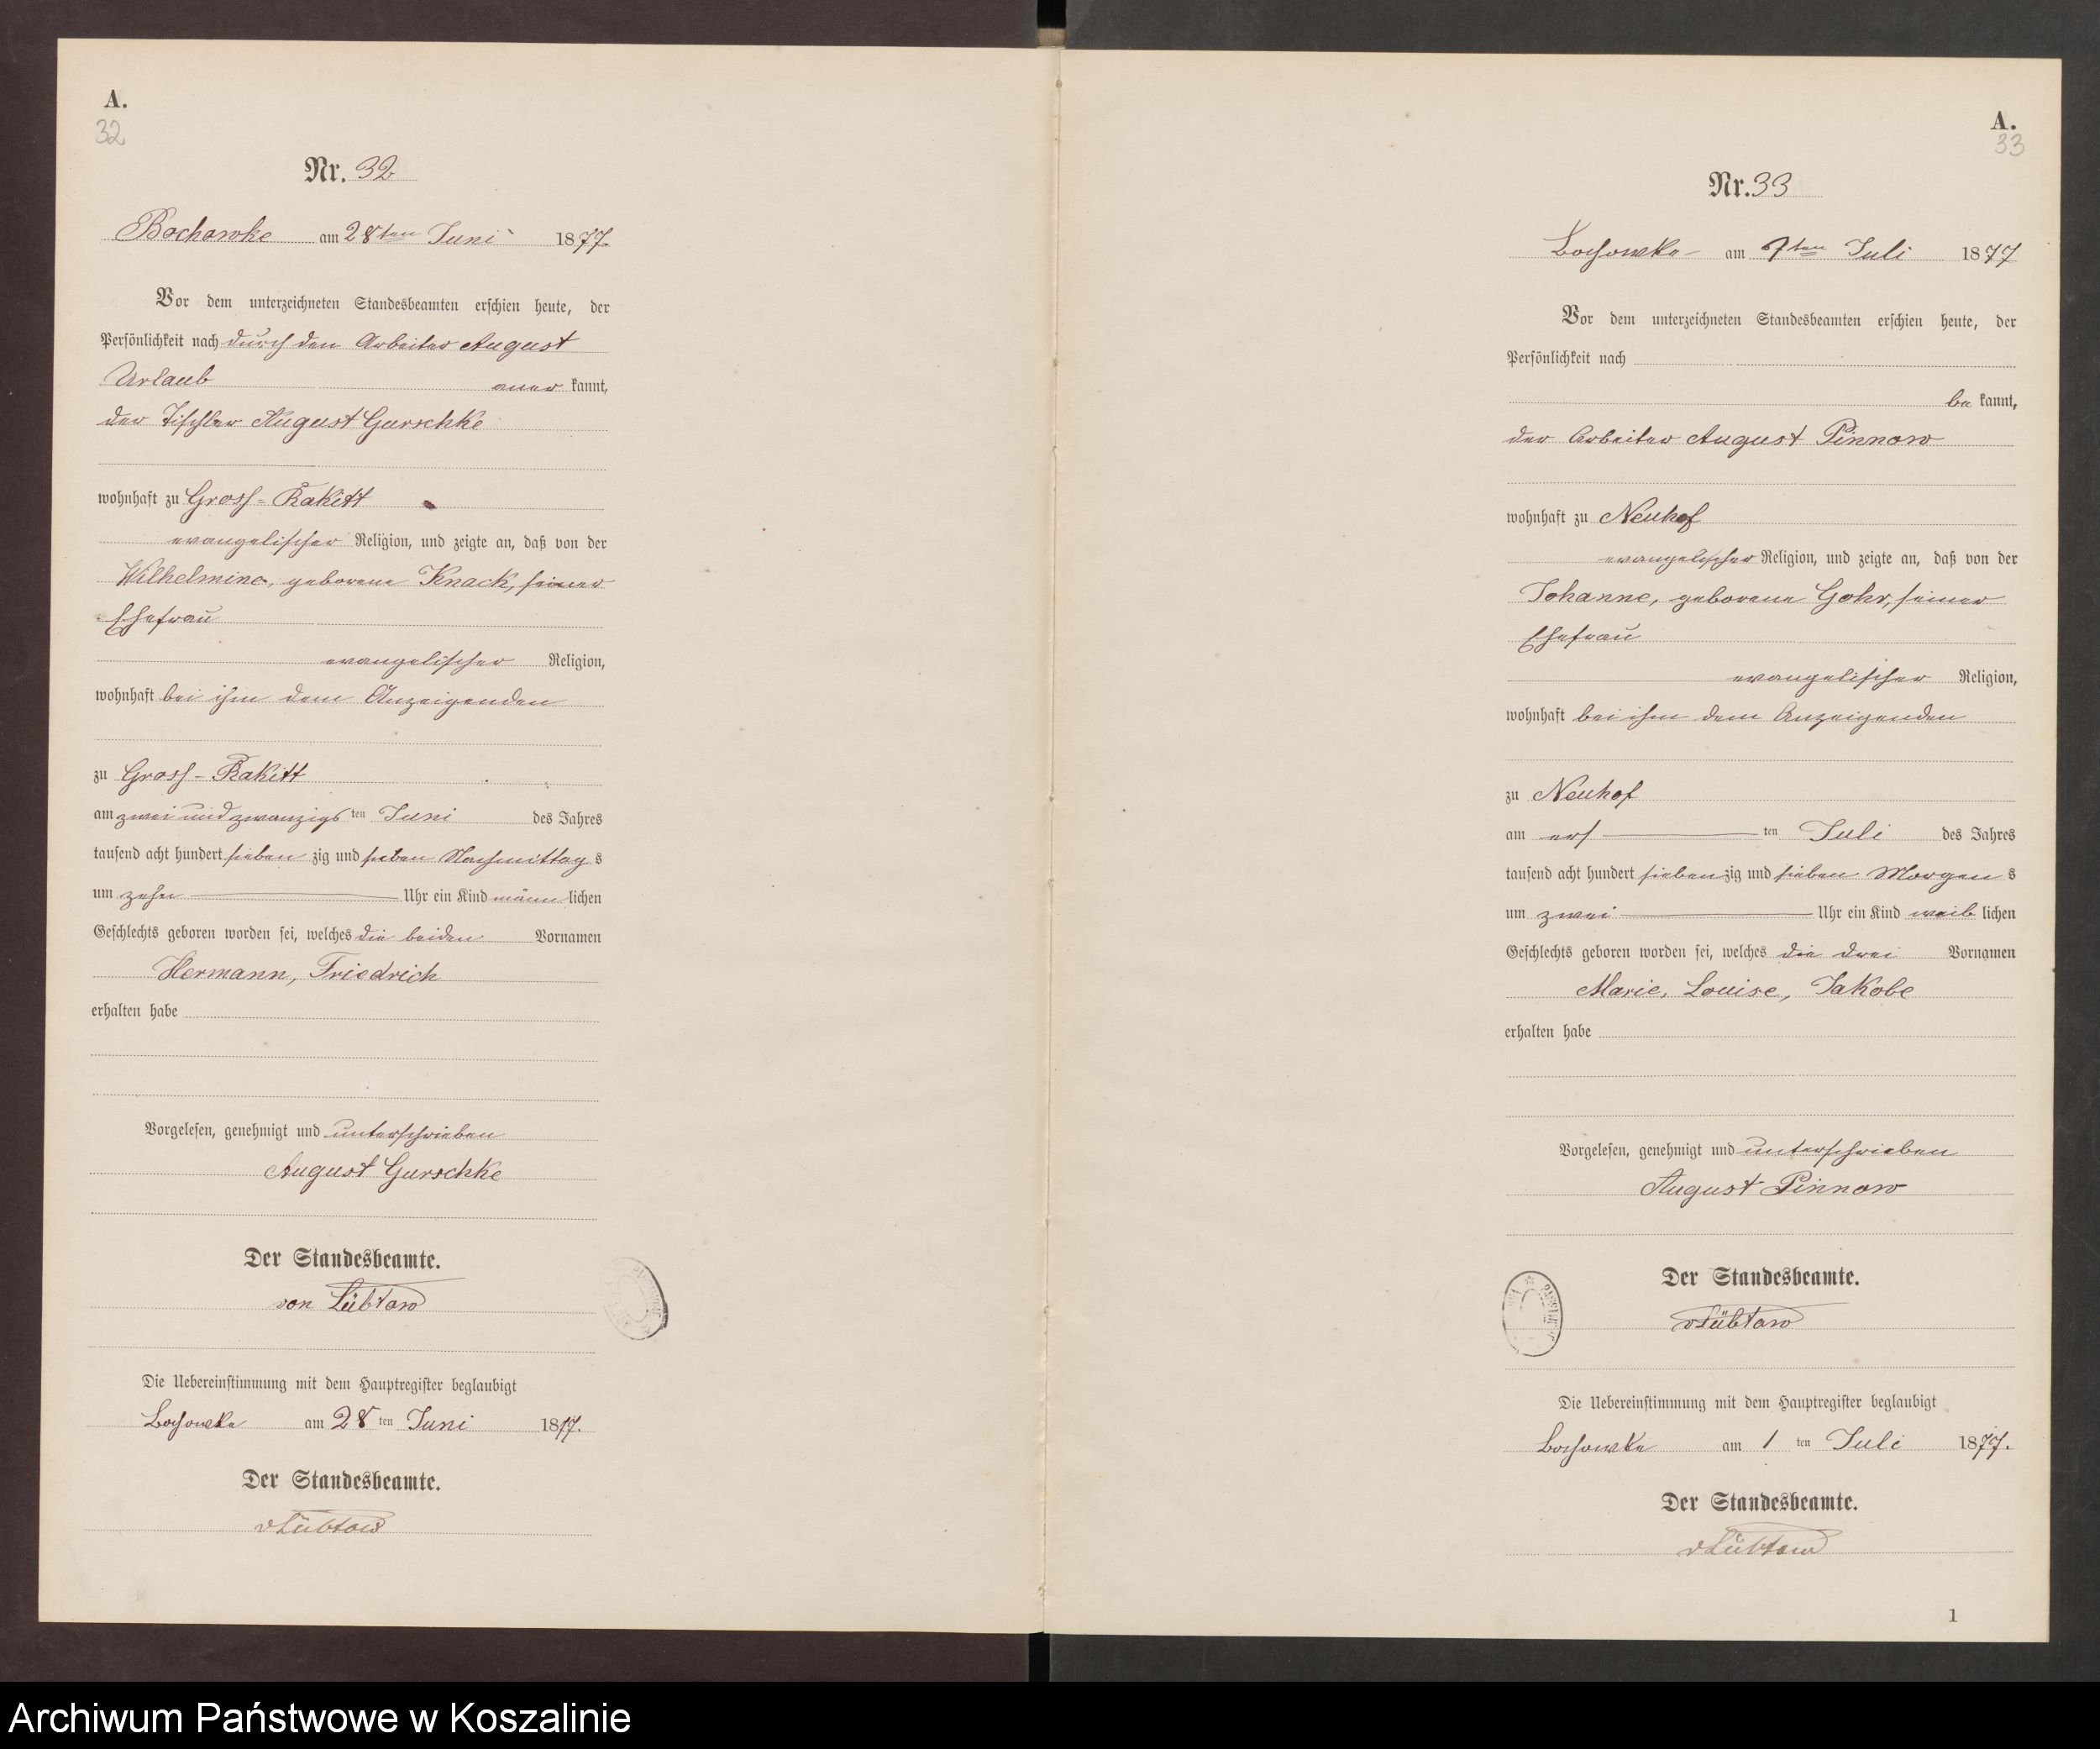 A.
32
Nr. 32
Bochowke am 28ten Juni 1877.
Vor dem unterzeichneten Standesbeamten erschien heute, der
Persönlichkeit nach durch den Arbeiter August
Urlaub aner kannt,
der Tischler August Gurschke
wohnhaft zu Gross-Rakitt
evangelischer Religion, und zeigte an, daß von der
Wilhelmine, geborene Knack, seiner
Ehefrau
evangelischer Religion,
wohnhaft bei ihm dem Anzeigenden
zu Gross-Rakitt
am zwei und zwanzigs ten Juni des Jahres
tausend acht hundert sieben zig und sieben Nachmittag s
um zehn Uhr ein Kind männ lichen
Geschlechts geboren worden sei, welches die beiden Vornamen
Hermann, Friedrich
erhalten habe
Vorgelesen, genehmigt und unterschrieben
August Gurschke
Der Standesbeamte.
von Lübtow
Die Uebereinstimmung mit dem Hauptregister beglaubigt
Bochowke am 28 ten Juni 1877.
Der Standesbeamte.
vLübtow
A.
33
Nr. 33
Bochowke am 7ten Juli 1877
Vor dem unterzeichneten Standesbeamten erschien heute, der
Persönlichkeit nach
be kannt,
der Arbeiter August Pinnow
wohnhaft zu Neuhof
evangelischer Religion, und zeigte an, daß von der
Johanne, geborene Gohr, seiner
Ehefrau
evangelischer Religion,
wohnhaft bei ihm dem Anzeigenden
zu Neuhof
am ers ten Juli des Jahres
tausend acht hundert sieben zig und sieben Morgen s
um zwei Uhr ein Kind weib lichen
Geschlechts geboren worden sei, welches die drei Vornamen
Marie, Louise, Jakobe
erhalten habe
Vorgelesen, genehmigt und unterschrieben
August Pinnow
Der Standesbeamte.
vLübtow
Die Uebereinstimmung mit dem Hauptregister beglaubigt
Bochowke am 1 ten Juli 1877.
Der Standesbeamte.
vLübtow
1
Archiwum Państwowe w Koszalinie